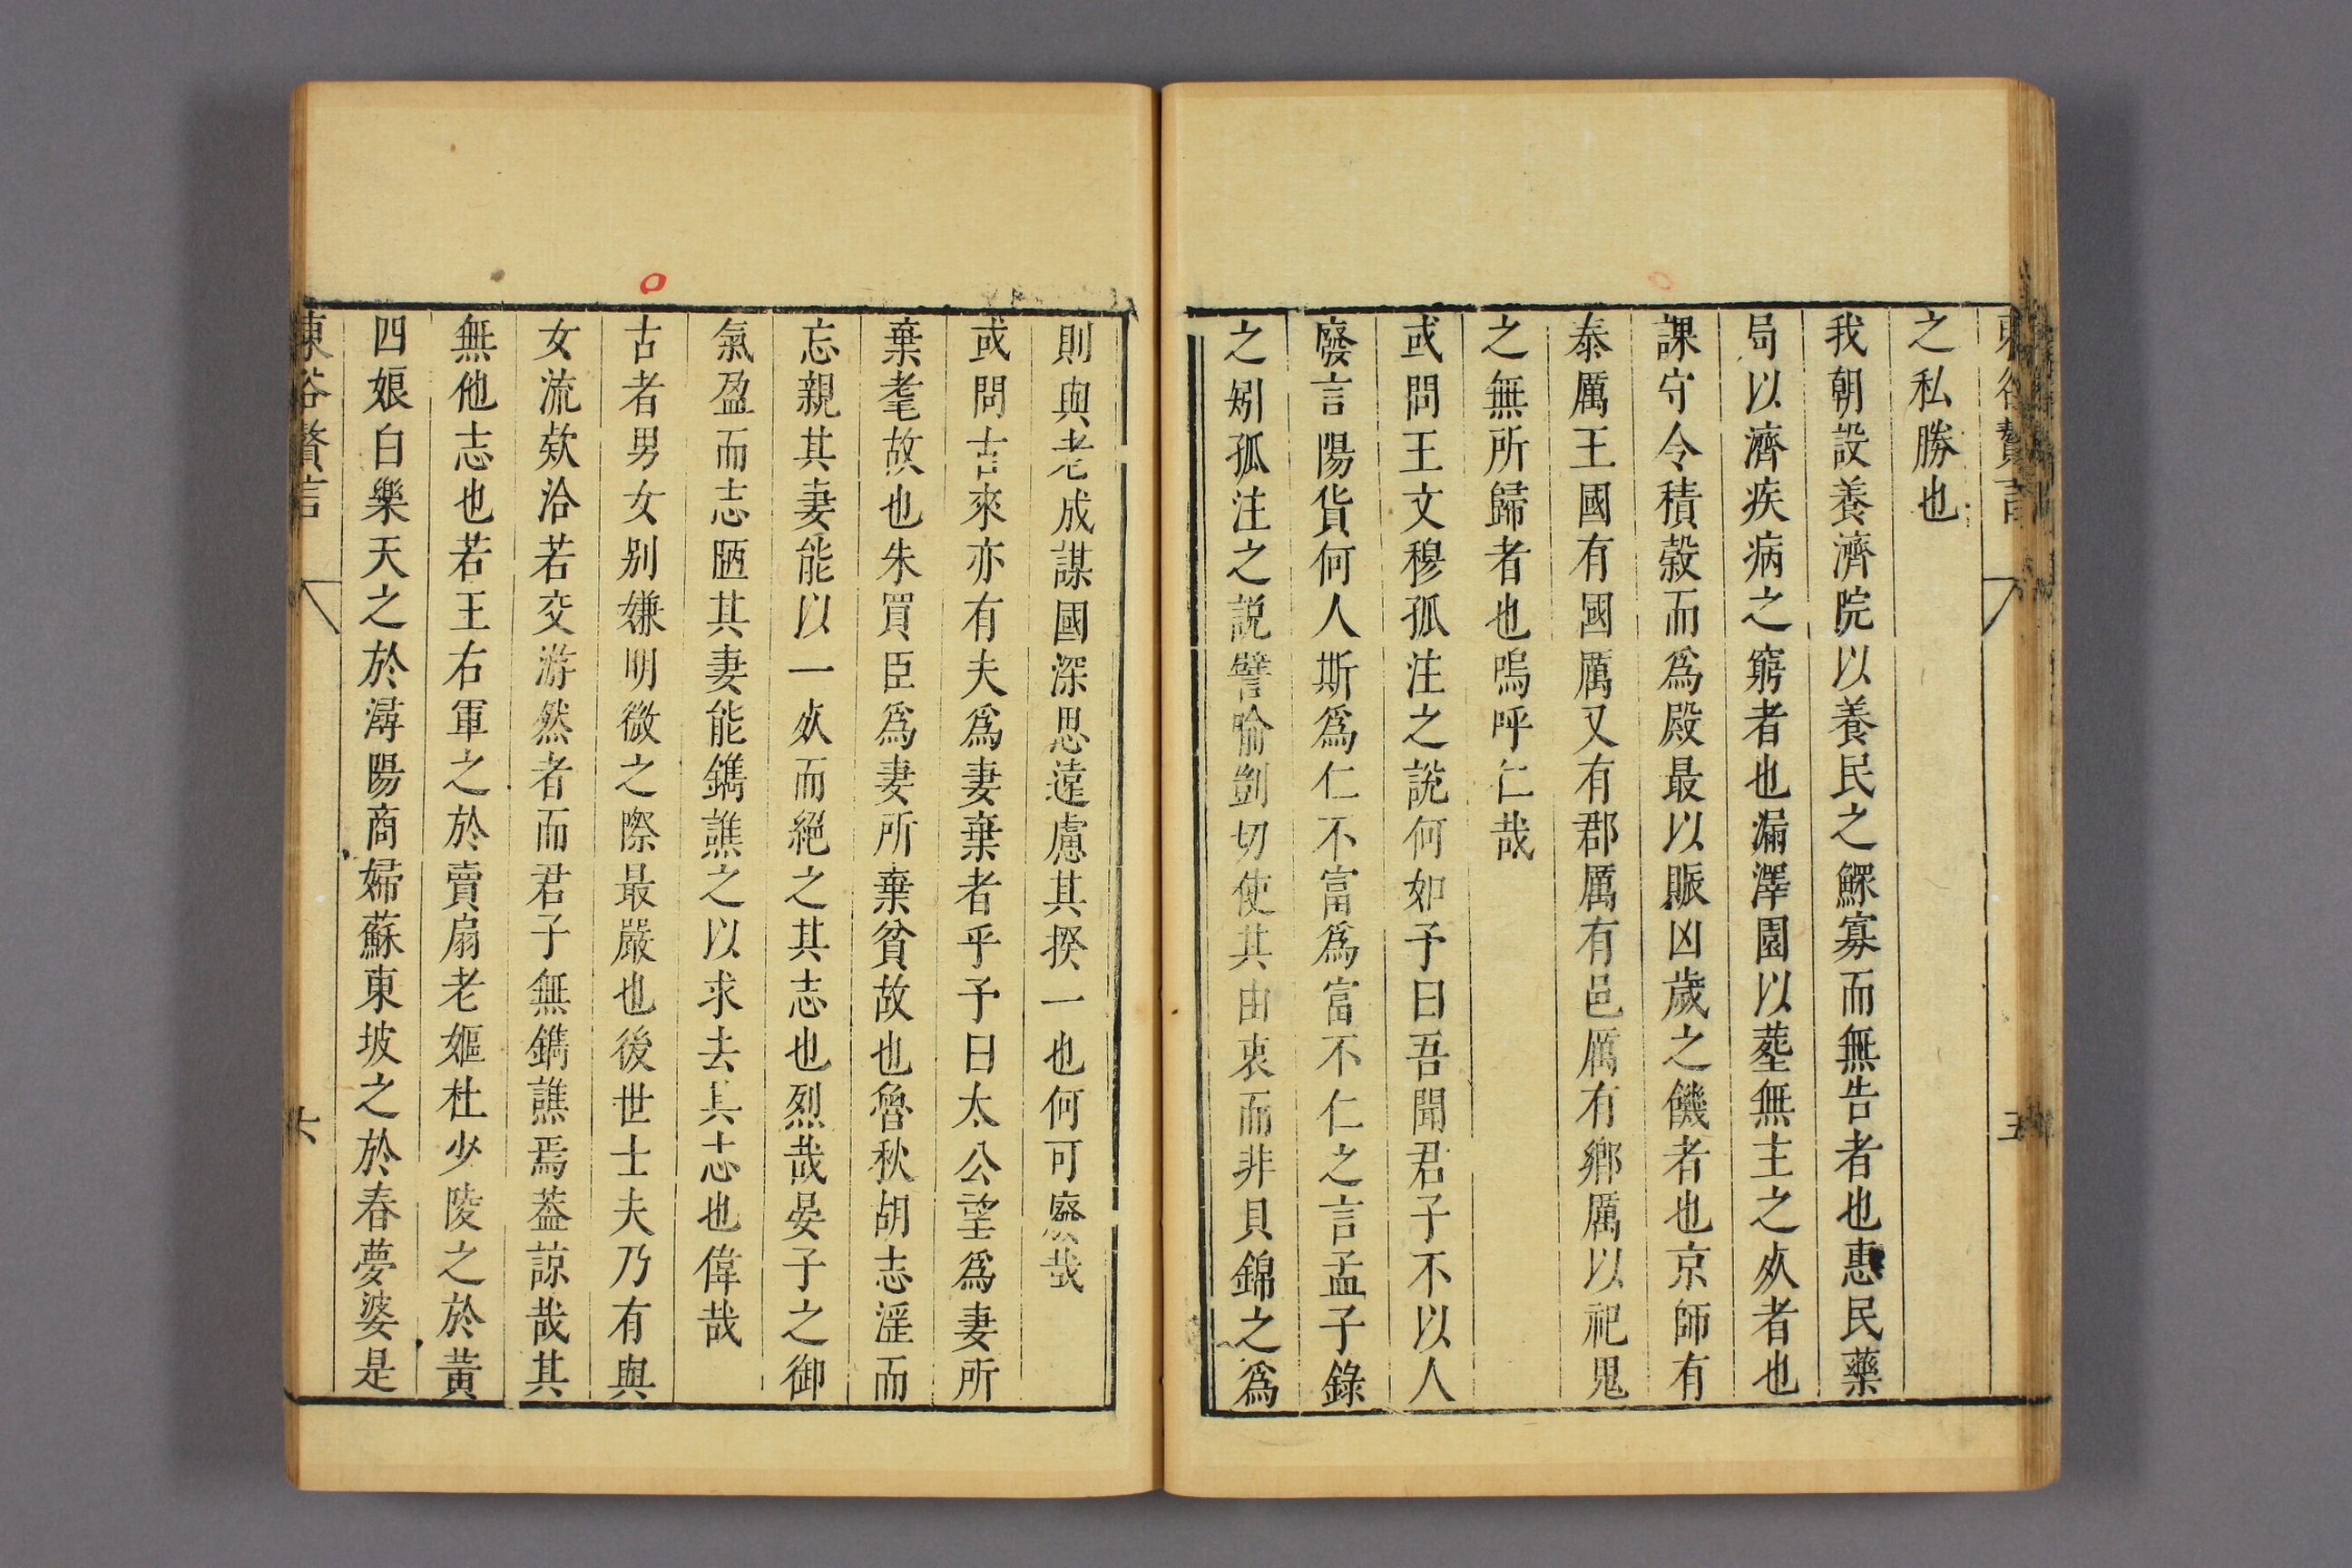 之私勝也
我朝設養濟院以養民之鰥寡而無告者也惠民藥
局以濟疾病之窮者也漏澤園以塟無主之㱠者也
課守令積穀而爲殿最以賑凶歲之饑者也京師有
泰厲王國有國厲又有郡厲有邑厲有鄉厲以祀鬼
之無所歸者也嗚呼仁哉
或問王文穆孤注之說何如予曰吾聞君子不以人
廢言陽貨何人斯爲仁不富爲富不仁之言孟子錄
之矧孤注之說譬喻剴切使其由衷而非貝錦之爲
則與老成謀國深思遠慮其揆一也何可廢哉
或問古來亦有夫爲妻棄者乎予曰太公望爲妻所
棄耄故也朱買臣爲妻所棄貧故也魯秋胡志淫而
忘親其妻能以一㱠而絕之其志也烈哉晏子之御
氣盈而志陋其妻能鐫譙之以求去其志也偉哉
古者男女别嫌明微之際最嚴也後世士夫乃有與
女流欵洽若交游然者而君子無鐫譙焉葢諒哉其
無他志也若王右軍之於賣扇老嫗杜少陵之於黃
四娘白樂天之於潯陽商婦蘇東坡之於春夢婆是
東谷贅言
六